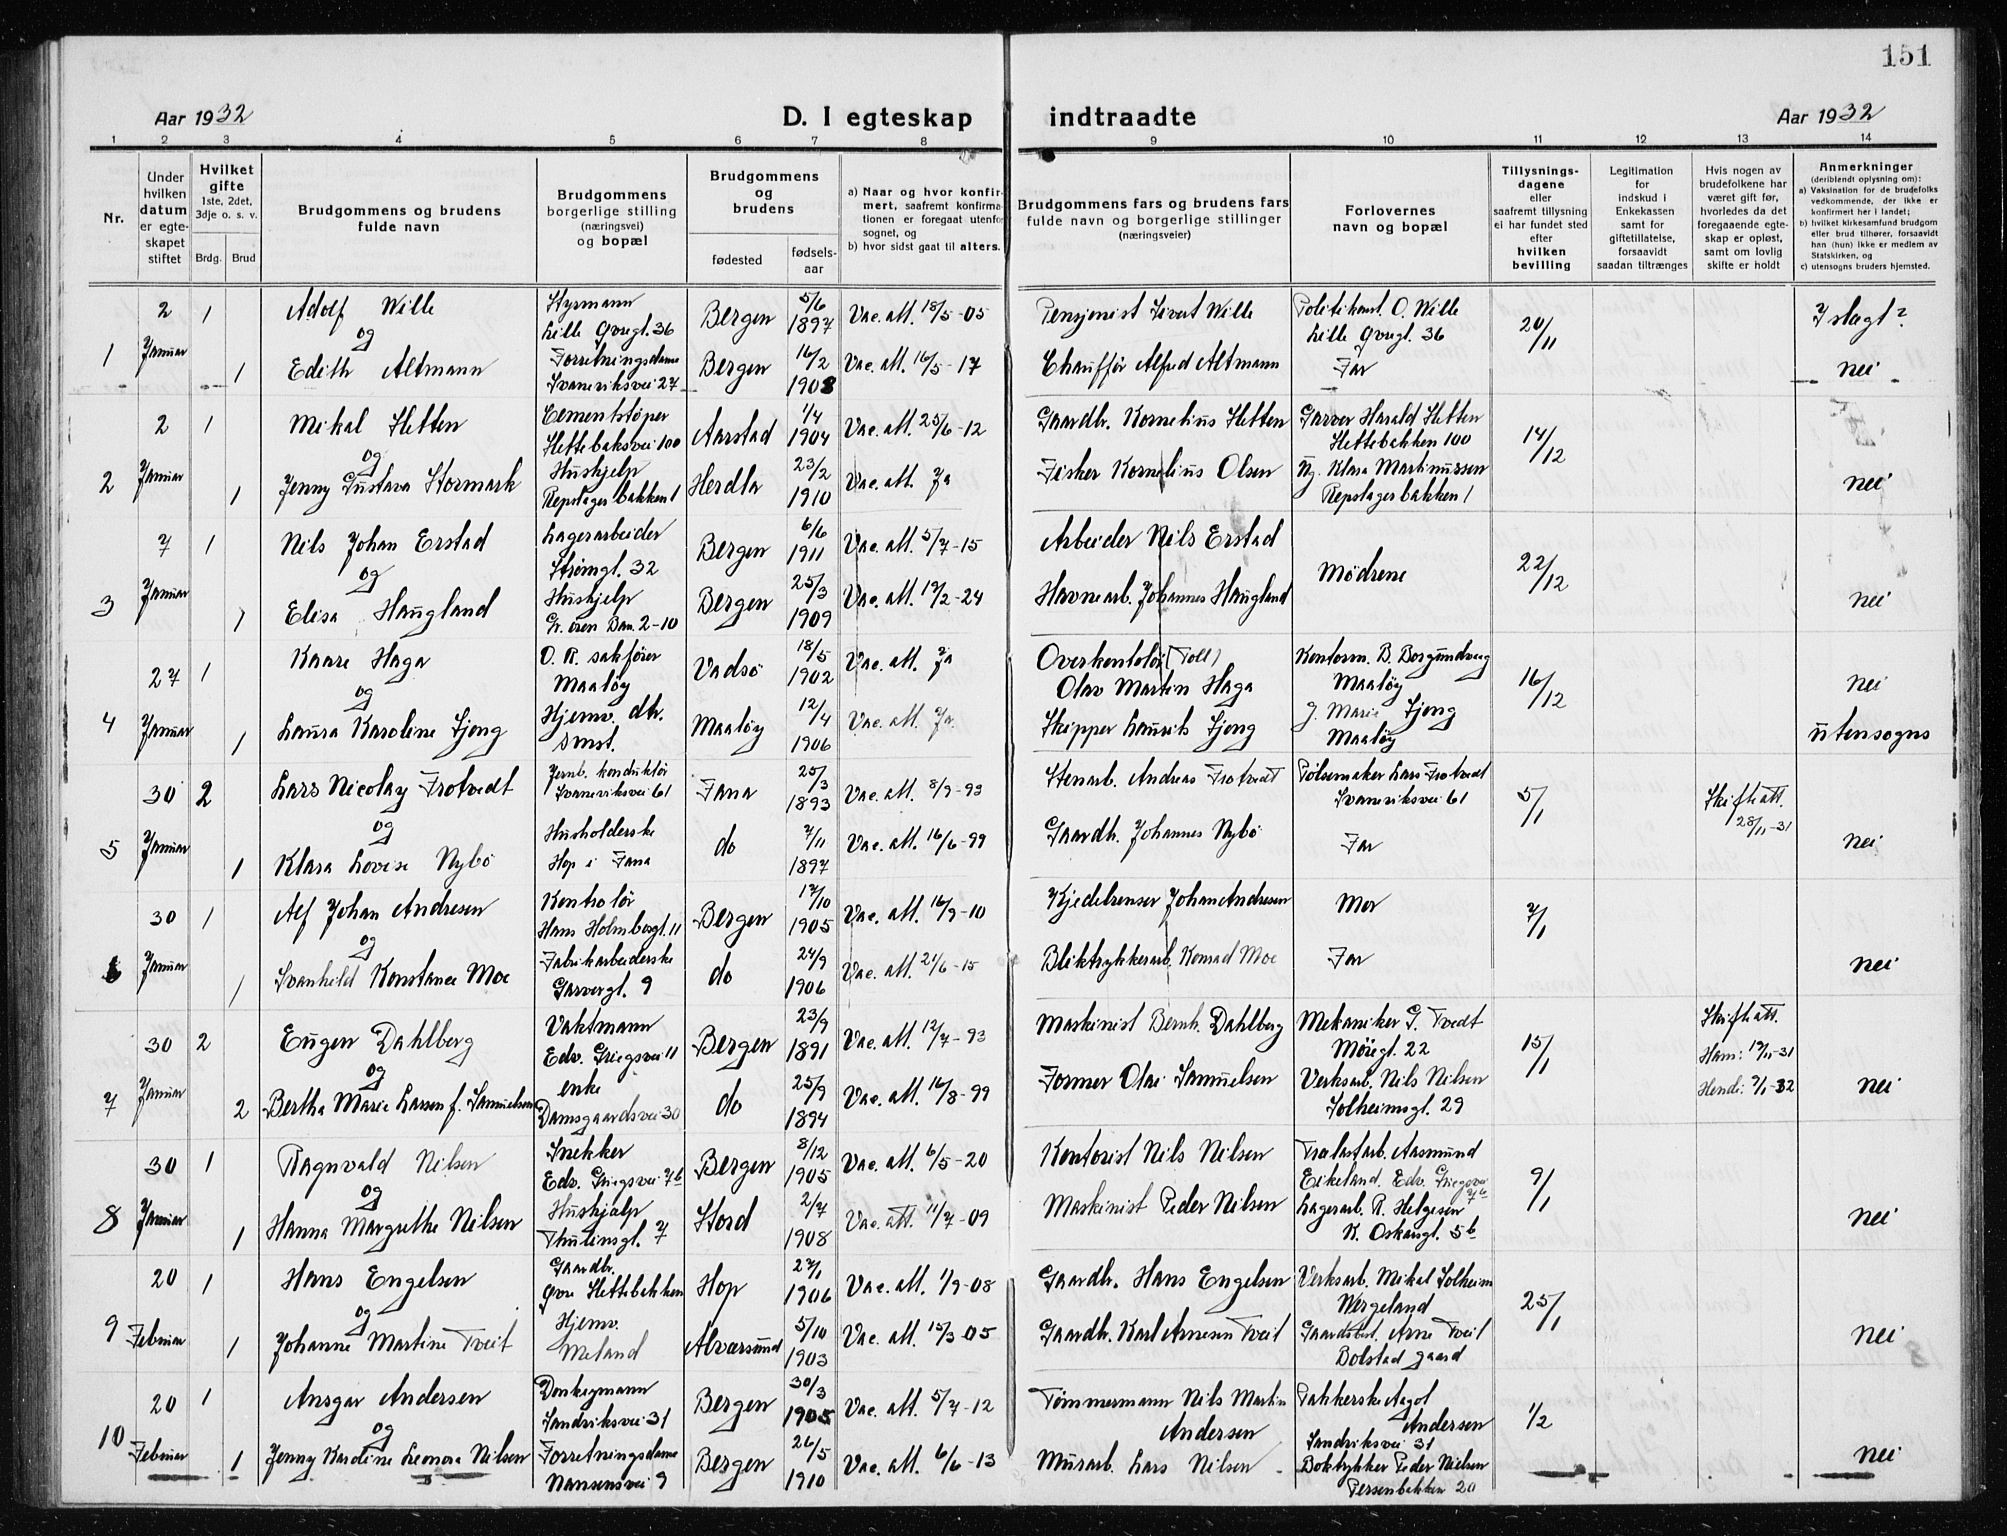 151
Aar 1932
D. I egteskap indtraadte
Aar 1932
1 2 3 4 5 6 7 8 9 10 11 12 13 14
Nr.
Under hvilken datum er egteskapet stiftet
Hvilket gifte 1ste, 2det, 3dje o. s. v.
Brdg. Brud
Brudgommens og brudens fulde navn
Brudgommens borgerlige stilling (næringsvei) og bopæl
Brudgommens og brudens
fødested
fødselsaar
a) Naar og hvor konfirmert, saafremt konfirmationen er foregaat utenfor sognet, og
b) hvor sidst gaat til alters.
Brudgommens fars og brudens fars fulde navn og borgerlige stillinger (næringsveier)
Forlovernes navn og bopæl
Tillysningsdagene eller saafremt tillysning ei har fundet sted efter hvilken bevilling
Legitimation for indskud i Enkekassen samt for giftetillatelse, forsaavidt saadan tiltrænges
Hvis nogen av brudefolkene har været gift før, hvorledes da det foregaaende egteskap er opløst, samt om lovlig skifte er holdt
Anmerkninger (deriblendt oplysning om):
a) Vaksination for de brudefolks vedkommende, der ikke er konfirmert her i landet;
b) hvilket kirkesamfund brudgom eller brud tilhører, forsaavidt han (hun) ikke er medlem av Statskirken, og
c) utensogns bruders hjemsted.
1 2 Januar 1 Adolf Wille Styrmann Lille Øvregt. 36 Bergen 5/6 1897 Vac. att. 18/5-05 Pensjonist Sivert Wille Politikonst. O. Wille Lille Øvregt. 36 20/11 I slagt?
og
1 Edith Altmann Forretningsdame Svaneviksvei 27 Bergen 16/2 1908 Vac. att. 16/5-17 Chauffør Alfred Altmann Far nei
2 2 Januar 1 Mikal Sletten Cementstøper Slettebaksvei 100 Aarstad 1/4 1904 Vac. att. 25/6-12 Gaardbr. Kornelius Sletten Garver Harald Sletten Slettebakken 100 14/12
og
1 Jenny Gustava Stormark Hushjelp Repslagerbakken 1 Herdla 23/2 1910 Vac. att. Ja Fisker Kornelius Olsen Ug. Klara Martinussen Repslagerbakken 1 nei
3 7 Januar 1 Nils Johan Erstad Lagerarbeider Strømgt. 32 Bergen 6/6 1911 Vac. att. 5/7-15 Arbeider Nils Erstad Mødrene 22/12
og
1 Elisa Haugland Hushjelp 2-10 Bergen 25/3 1909 Vac. att. 19/2-24 Havnearb. Johannes Haugland nei
4 27 Januar 1 Kaare Haga O. R. sakfører Maaløy Vadsø 18/5 1902 Vac. att. Ja Overkontolør (Toll) Olav Martin Haga Kontorm. B. Borgundvaag Maaløy 16/12 nei
og
1 Laura Karoline Sjong Hjemv. dtr. smst. Maaløy 12/4 1906 Vac. att. Ja Skipper Laurits Sjong J. Marie Sjong Maaløy utensogns
5 30 Januar 2 Lars Nicolay Frotvedt Jernb. konduktør Svaneviksvei 61 Fana 25/3 1893 Vac. att. 8/9-93 Stenarb. Andreas Frotvedt Pølsemaker Lars Frotvedt Svaneviksvei 61 5/1 Skifteatt. 28/11-31
og
1 Klara Lovise Nybø Husholderske Hop i Fana do 7/11 1897 Vac. att. 16/6-99 Gaardb. Johannes Nybø Far nei
6 30 Januar 1 Alf Johan Andresen Kontrolør Hans Holmboegt. 11 Bergen 17/10 1905 Vac. att. 16/9-10 Kjedelrenser Johan Andresen Mor 7/1
og
1 Svanhild Konstance Moe Fabrikarbeiderske Garvergt. 9 do 24/9 1906 Vac. att. 21/6-15 Bliktrykkerarb. Konrad Moe Far nei
7 30 Januar 2 Eugen Dahlberg Vaktmann Edv. Griegsvei 11 Bergen 23/9 1891 Vac. att. 12/7-93 Maskinist Bernh. Dahlberg Mekaniker G. Tvedt Møregt. 22 15/1 Skifteatt. Ham: 19/11-31
og
2 Bertha Marie Larsen f. Samuelsen enke Damsgaardsvei 30 do 25/9 1894 Vac. att. 16/8-99 Former Olai Samuelsen Verksarb. Nils Nilsen Solheimsgt. 29 Hende: 9/1-32 nei
8 30 Januar 1 Ragnvald Nilsen Snekker Edv. Griegsvei 7b Bergen 8/12 1905 Vac. att. 6/5-20 Kontorist Nils Nilsen Trælastarb. Aasmund Eikeland, Edv. Griegsvei 7b 9/1
og
1 Hanna Margrethe Nilsen Hushjælp Thulinsgt. 7 Stord 2/7 1908 Vac. att. 11/7-09 Maskinist Peder Nilsen Lagerarb. R. Helgesen K. Oskarsgt. 5b nei
9 20 Februar 1 Hans Engelsen Gaardbr. Øvre Slettebakken Hop 27/1 1906 Vac. att. 1/9-08 Gaardbr. Hans Engelsen Verksarb. Mikal Solheim Wergeland 25/1
og
1 Johanne Martine Tveit Hjemv. Meland Alversund 5/10 1903 Vac. att. 15/3-05 Gaardbr. Karl Arnesen Tveit Gaardbest. Arne Tveit Bolstad gaard nei
10 20 Februar 1 Ansgar Andersen Donkeymann Sandviksvei 31 Bergen 30/3 1905 Vac. att. 5/7-12 Tømmermann Nils Martin Andersen Pakkerske Aagot Andersen Sandviksvei 31 1/2
og
1 Jenny Karoline Leonora Nilsen Forretningsdame Nansensvei 9 Bergen 26/5 1910 Vac. att. 6/6-13 Murarb. Lars Nilsen Boktrykker Peder Nielsen Persenbakken 20 nei